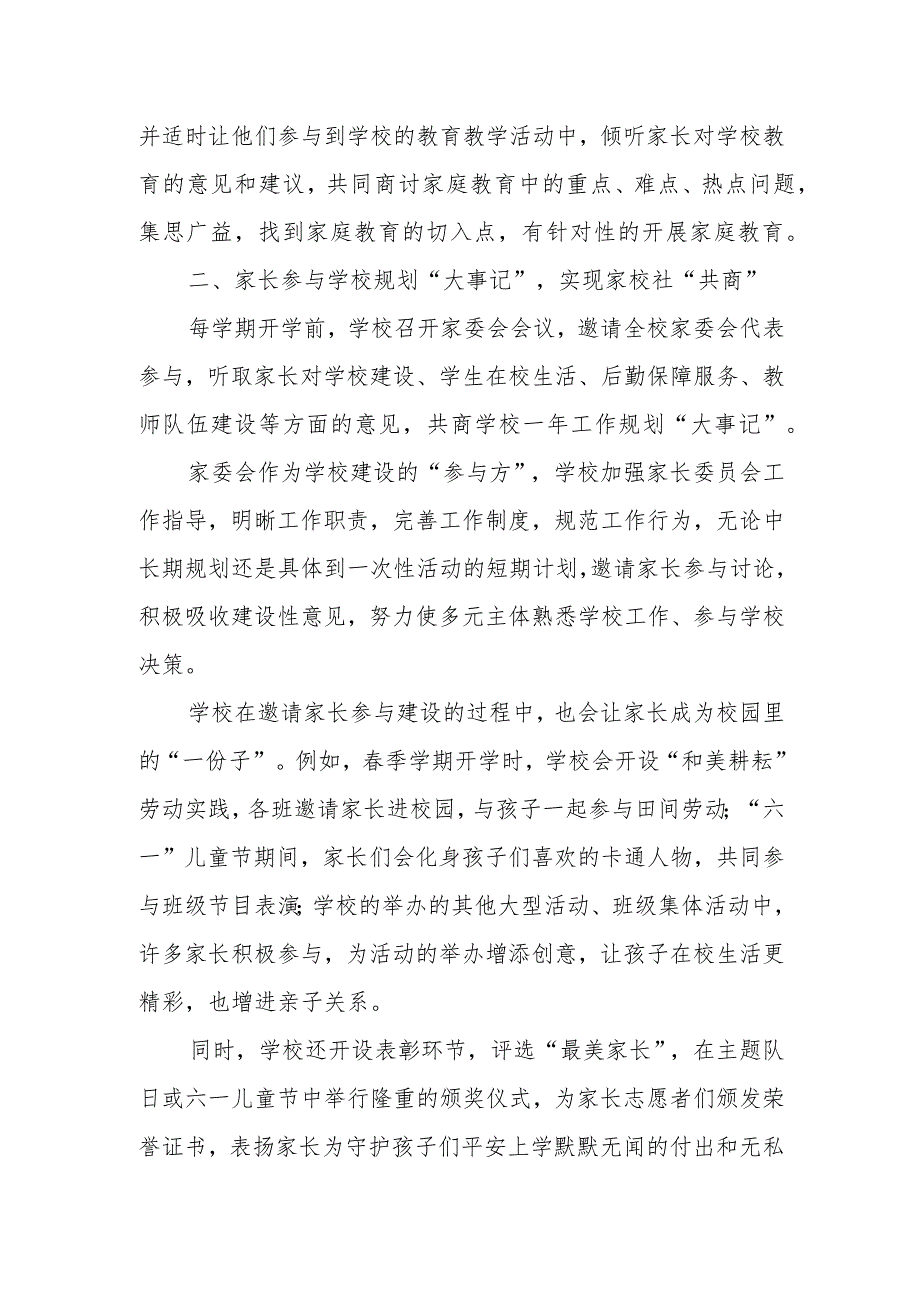 并适时让他们参与到学校的教育教学活动中，倾听家长对学校教
育的意见和建议，共同商讨家庭教育中的重点、难点、热点问题，
集思广益，找到家庭教育的切入点，有针对性的开展家庭教育。
二、家长参与学校规划“大事记”，实现家校社“共商”
每学期开学前，学校召开家委会会议，邀请全校家委会代表
参与，听取家长对学校建设、学生在校生活、后勤保障服务、教
师队伍建设等方面的意见，共商学校一年工作规划“大事记”。
家委会作为学校建设的“参与方”，学校加强家长委员会工
作指导，明晰工作职责，完善工作制度，规范工作行为，无论中
长期规划还是具体到一次性活动的短期计划，邀请家长参与讨论，
积极吸收建设性意见，努力使多元主体熟悉学校工作、参与学校
决策。
学校在邀请家长参与建设的过程中，也会让家长成为校园里
的“一份子”。例如，春季学期开学时，学校会开设“和美耕耘”
劳动实践，各班邀请家长进校园，与孩子一起参与田间劳动；“六
一”儿童节期间，家长们会化身孩子们喜欢的卡通人物，共同参
与班级节目表演；学校的举办的其他大型活动、班级集体活动中，
许多家长积极参与，为活动的举办增添创意，让孩子在校生活更
精彩，也增进亲子关系。
同时，学校还开设表彰环节，评选“最美家长”，在主题队
日或六一儿童节中举行隆重的颁奖仪式，为家长志愿者们颁发荣
誉证书，表扬家长为守护孩子们平安上学默默无闻的付出和无私